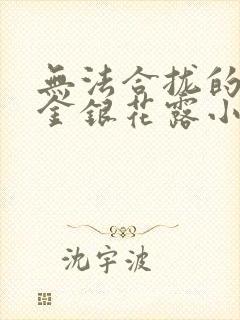 無法合拢的
金銀花露小
沈宇波